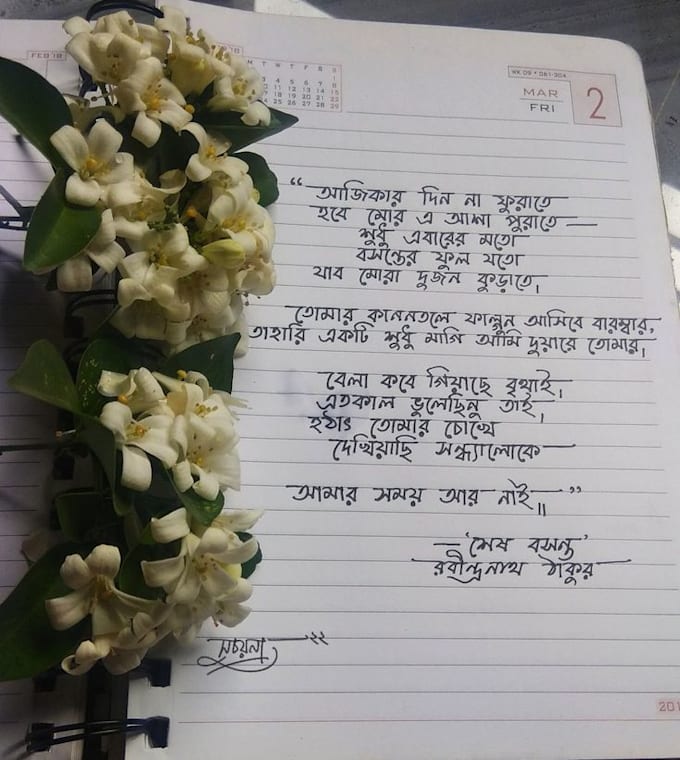 FEB'18
M T W T F S S
WK 09 • 061-304
MAR
FRI
2
“আজিকার দিন না ফুরাতে
হবে মোর এ আশা পুরাতে —
শুধু এবারের মতো
বসন্তের ফুল যতো
যাব মোরা দুজন কুড়াতে।
তোমার কাননতলে ফাল্গুন আসিবে বারম্বার,
তাহারি একটি শুধু মাগি আমি দুয়ারে তোমার।
বেলা কবে গিয়াছে বৃথাই,
এতকাল ভুলেছিনু তাই,
হঠাৎ তোমার চোখে
দেখিয়াছি সন্ধ্যালোকে —
আমার সময় আর নাই॥”
— ‘শেষ বসন্ত’
রবীন্দ্রনাথ ঠাকুর
সচয়না — '২২
201